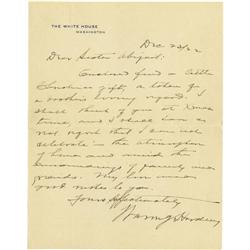 THE WHITE HOUSE
WASHINGTON
Dec 23/22
Dear Sister Abigail:
Enclosed find a little
Christmas gift, a token of
a brother's loving regard. I
shall think of you at Xmas
time, and I shall
not regret that I can not
celebrate in the atmosphere
of home and amid the
surroundings of family and
friends. My love and
good wishes to you.
Yours affectionately
Warren G Harding